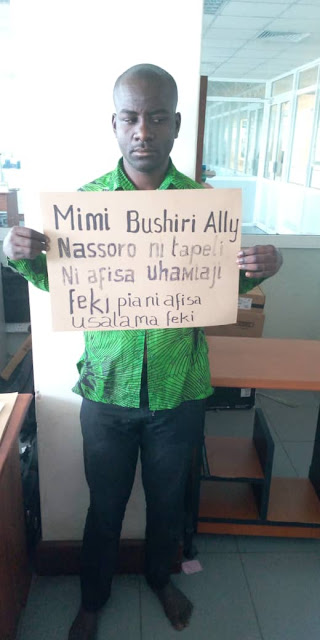 Mimi Bushiri Ally
Nassoro ni tapeli
Ni afisa uhamiaji
feki pia ni afisa
usalama feki